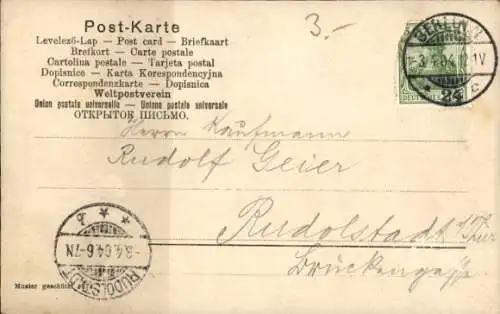 Post-Karte
Levelező-Lap — Post card — Briefkaart
Brefkort — Carte postale
Cartolina postale — Tarjeta postal
Dopisnice — Karta Korespondencyjna
Correspondenzkarte — Dopisnica
Weltpostverein
Union postale universelle — Unione postale universale
ОТКРЫТОЕ ПИСЬМО.
3.-
BERLIN
3.4.04
1V
* 24 c
Herrn Kaufmann
Rudolf Geier
Rudolstadt
Brückengasse
-3.4.04.6-7N
RUDOLSTADT
Muster geschützt